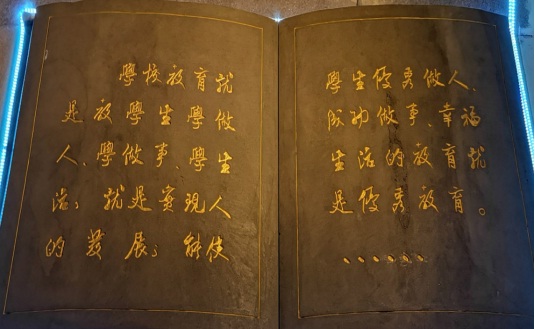 學校教育就
是教學生學做
人、學做事、學生
活；就是實現人
的發展；能使
學生優秀做人、
成功做事、幸福
生活的教育就
是優秀教育。
……